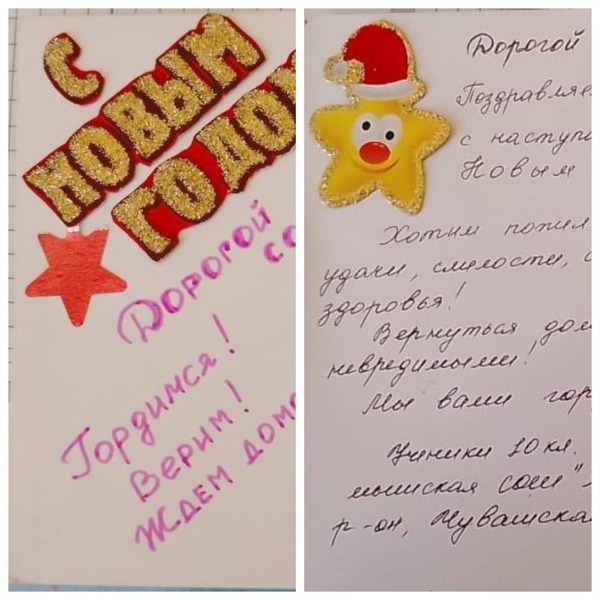 С
НОВЫМ
ГОДОМ
Дорогой
со
Гордимся!
Верим!
Ждем домо
Дорогой
Поздравляе
с наступи
Новым
Хотим пожел
удачи, смелости, с
здоровья!
Вернуться дом
невредимыми!
Мы вами гор
Ученики 10 кл.
мышская сош "
р-он, Чувашска